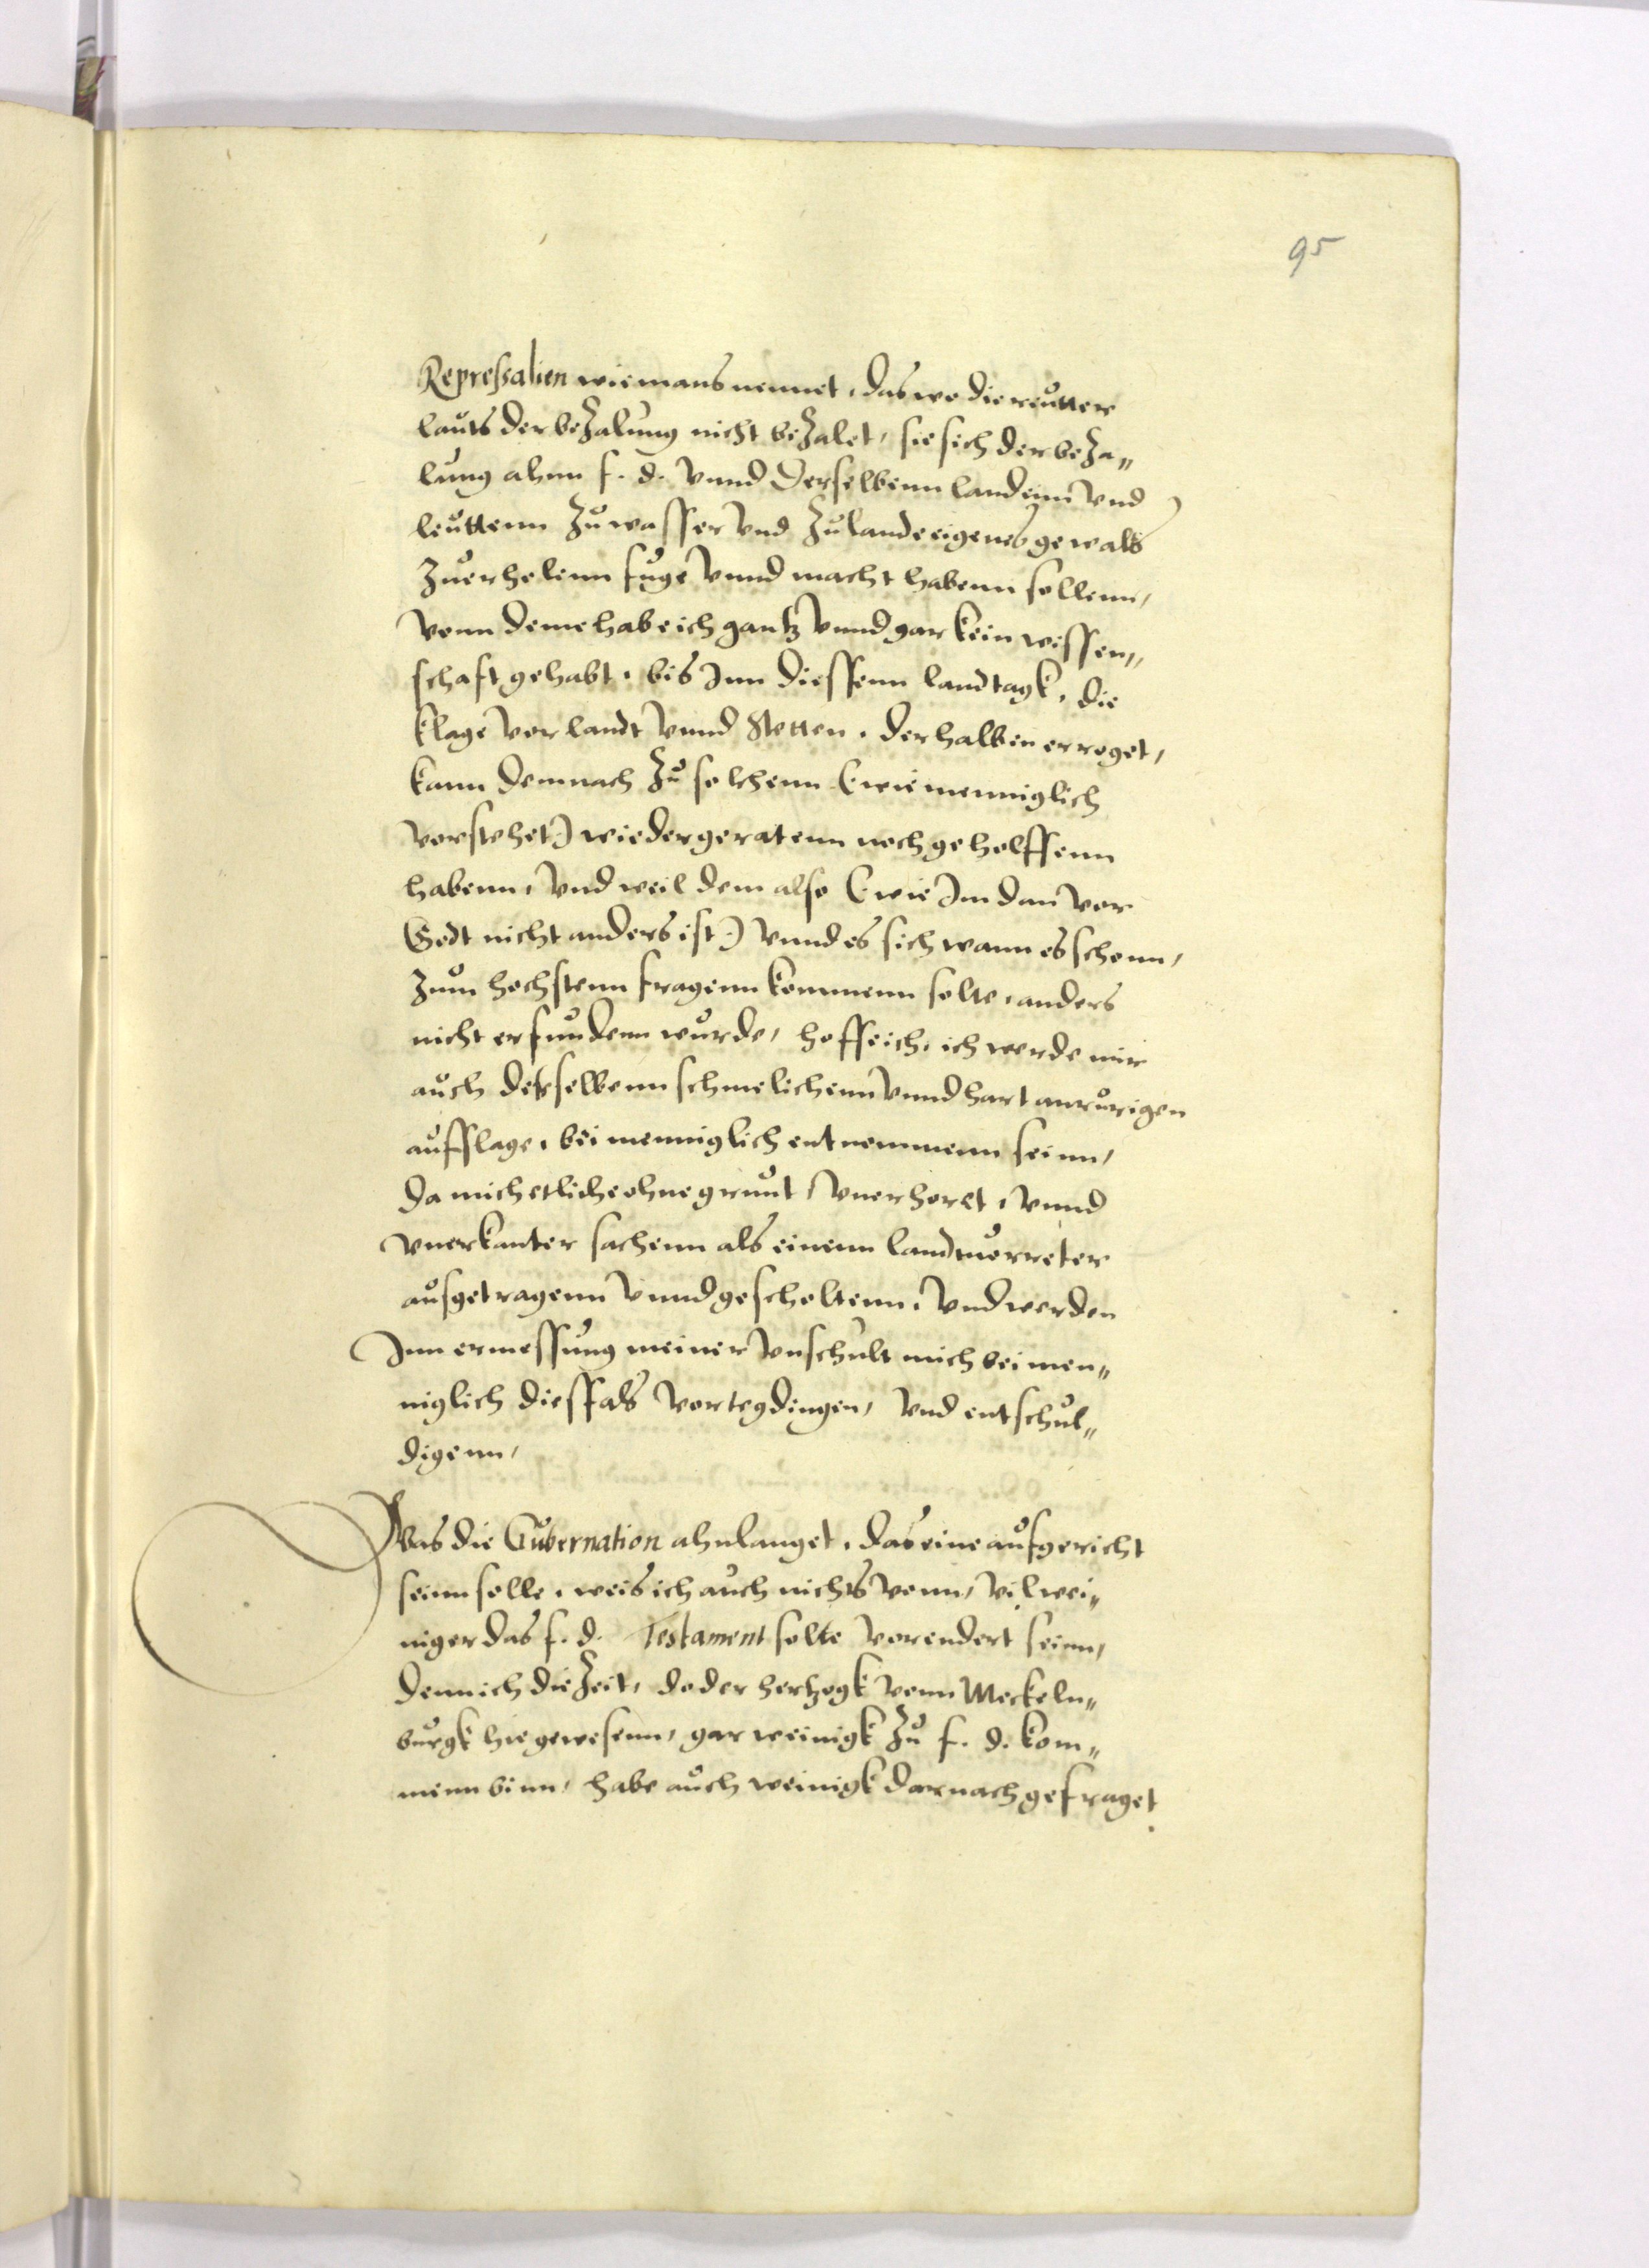 95
Repressalien wie mans nennet, das wo die reutter
lauts der beZalung nicht beZalet, sie sich der beZa„
lung ahnn f. d. vnnd derselbenn landenn vnd
leuttenn Zu wasser vnd Zu lande eigenes gewalts
Zuerholenn fuge vnnd macht habenn sollenn,
vonn deme habe ich gantz vnnd gar kein wissen„
schaft gehabt, bis Inn diessenn landtagk, die
klage vor landt vnnd Stetten, derhalben erreget,
kann demnach Zu solchenn (wie menniglich
vorstehet) wieder geratenn noch geholffenn
habenn, vnd weil dem also (wie Im dan vor
Godt nicht anders ist) vnnd es sich wann es schonn,
Zum hochstenn fragenn kommenn solte, anders
nicht erfundenn wurde, hoffe ich, ich werde mir
auch derselbenn schmelichenn vnnd hart anrurigen
aufflage, bei menniglich entnommenn seinn,
da mich etliche ohne grunt, vnerhoret, vnnd
vnerkanter sachenn als einenn landtuorreter
ausgetragenn vnnd gescholtenn, vnd werden
Inn ermessung meiner vnschult mich bei men„
niglich diessfals vortegdingen, vnd entschul„
digenn,
Was die Gubernation ahnlanget, das eine aufgericht
seinn solle, weis ich auch nichts vonn, vil wei„
niger das f. d. Testament solte vorendert seinn,
denn ich die Zeit, do der hertzogk vonn Meckeln„
burgk hie gewesenn, gar weinigk Zu f. d. kom„
menn binn, habe auch weinigk darnach gefraget